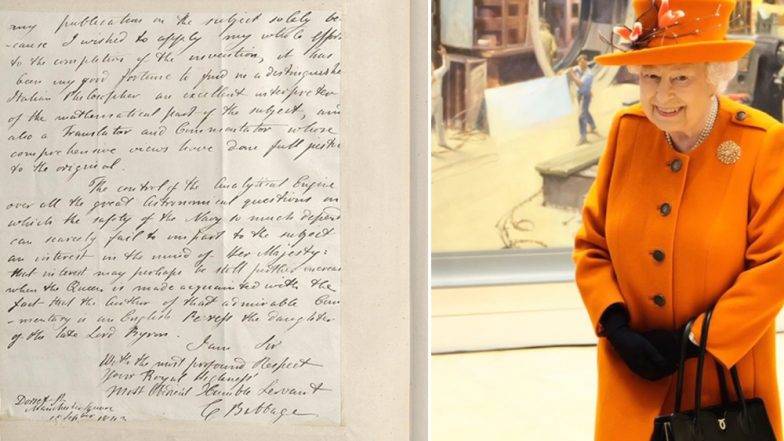 my publications on the subject solely be-
-cause I wished to apply my whole efforts
to the completion of the invention, it has
been my good fortune to find in a distinguished
Italian Philosopher an excellent interpreter
of the mathematical part of the subject, and
also a Translator and Commentator whose
comprehensive views have done full justice
to the original.
The control of the Analytical Engine
over all the great Astronomical questions on
which the safety of the Navy so much depends
can scarcely fail to impart to the subject
an interest in the mind of Her Majesty:
that interest may perhaps be still further increased
when the Queen is made acquainted with the
fact that the author of that admirable Com
-mentary is an English Peeress the daughter
of the late Lord Byron.
I am Sir
With the most profound Respect
Your Royal Highness'
Most Obedient Humble Servant
C Babbage
Dorset St
Manchester Square
1843